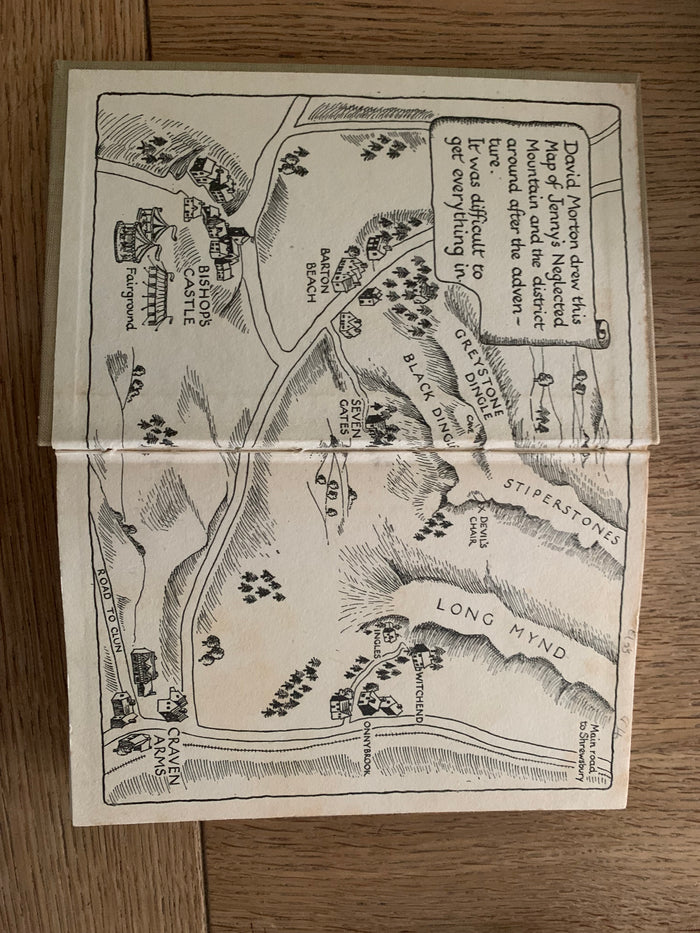 David Morton drew this
Map of Jenny's Neglected
Mountain and the district
around after the adven-
ture.
It was difficult to
get everything in
Main road
to Shrewsbury
GREYSTONE
DINGLE
CAVE
BLACK DINGLE
STIPERSTONES
DEVIL'S
CHAIR
LONG MYND
BARTON
BEACH
SEVEN
GATES
INGLES
WITCHEND
ONNYBROOK
BISHOP'S
CASTLE
Fairground
ROAD TO CLUN
CRAVEN
ARMS